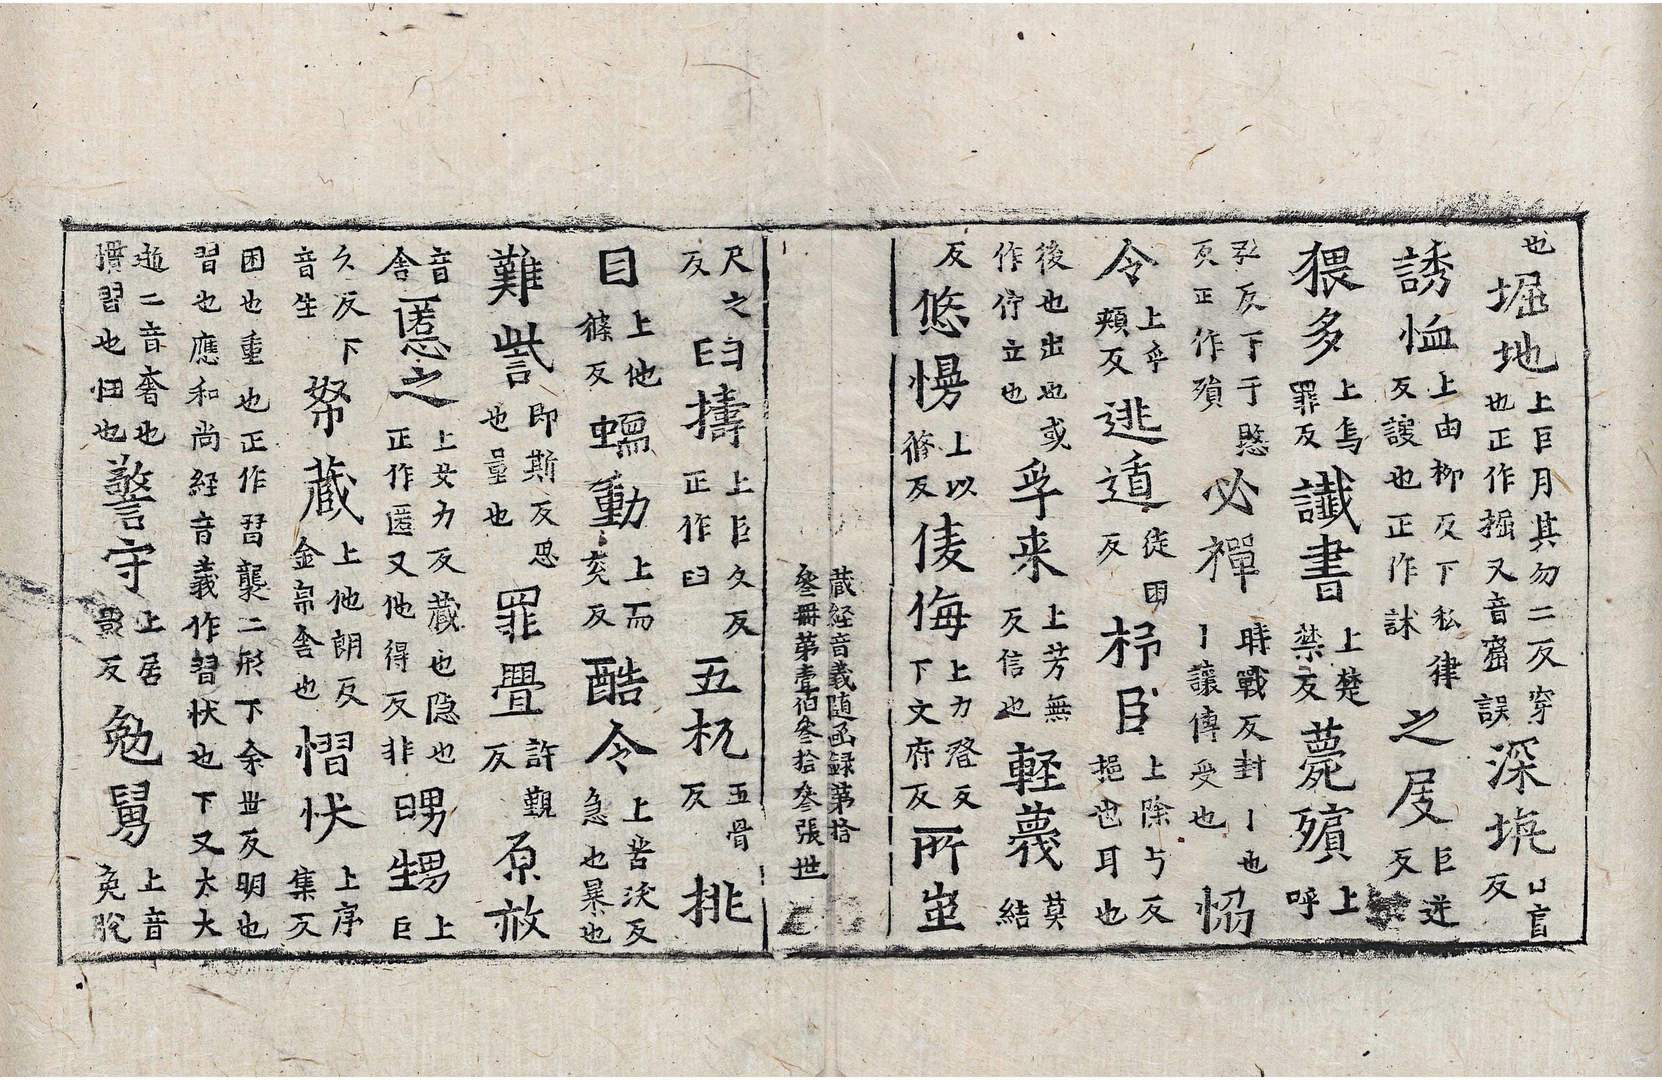 也堀地上巨月其勿二反穿也正作掘又音窟誤深坑口盲反
誘恤上由柳反下私律反謏也正作訹之屐巨逆反
猥多上烏罪反讖書上楚禁反薨殯上呼
弘反下于愍反正作殞必禪時戰反封丨也丨讓傳受也恊
令上乎頰反逃遁徒困反杼臼上除与反挹也耳也
後也出也或作佇立也孚来上芳無反信也軽蔑莫結
反悠慢上以脩反倰侮上力登反下文府反所蚩
藏経音義随函録第拾
叁冊第壹伯叁拾叁張世
尺之反臼擣上巨久反正作臼五杌五骨反挑
目上他篠反蝡動上而兖反酷令上苦沃反急也暴也
難訾即斯反思也量也罪舋許覲反原赦
音舍匿之上女力反藏也隐也正作匿又他得反非舅甥上巨
久反下音生帑藏上他朗反金帛舍也慴伏上序集反
因也重也正作習襲二形下余世反明也習也應和尚経音義作習伏也下又太大
逝二音奢也慣習也忸也警守上居影反勉舅上音免脫